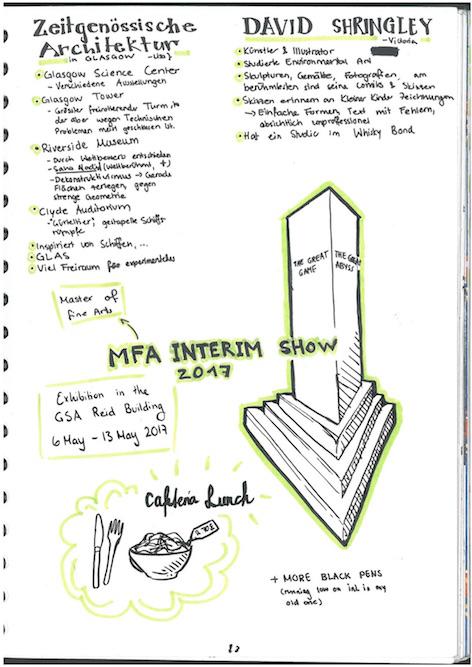 Zeitgenössische
Architektur
in GLASGOW
Glasgow Science Center
- Verschiedene Ausstellungen
Glasgow Tower
- Grösster freirotierender Turm, in
der aber wegen Technischen
Problemen meist geschlossen ist.
Riverside Museum
- Durch Wettbewerb entschieden
- Zaha Hadid (Weltberühmt, †)
- Dekonstruktivismus → Gerade
Flächen zerlegen, gegen
strenge Geometrie
Clyde Auditorium
gestapelte Schiffs
rümpfe
Inspiriert von Schiffen, ...
GLAS
Viel Freiraum für experimentelles
DAVID SHRINGLEY
- Victoria
Künstler & Illustrator
Studierte Environmental Art
Skulpturen, Gemälde, Fotografien, am
berühmtesten sind seine Comics & Skizzen
Skizzen erinnern an Kleine Kinder Zeichnungen
→ Einfache Formen, Text mit Fehlern,
absichtlich unprofessionel
Hat ein Studio im Whisky Bond
THE GREAT
GAME
THE GREAT
ABYSS
Master of
fine Arts
MFA INTERIM SHOW
2017
Exhibition in the
GSA Reid Building
6 May - 13 May 2017
Cafeteria Lunch
+ MORE BLACK PENS
(running low on ink in my
old one)